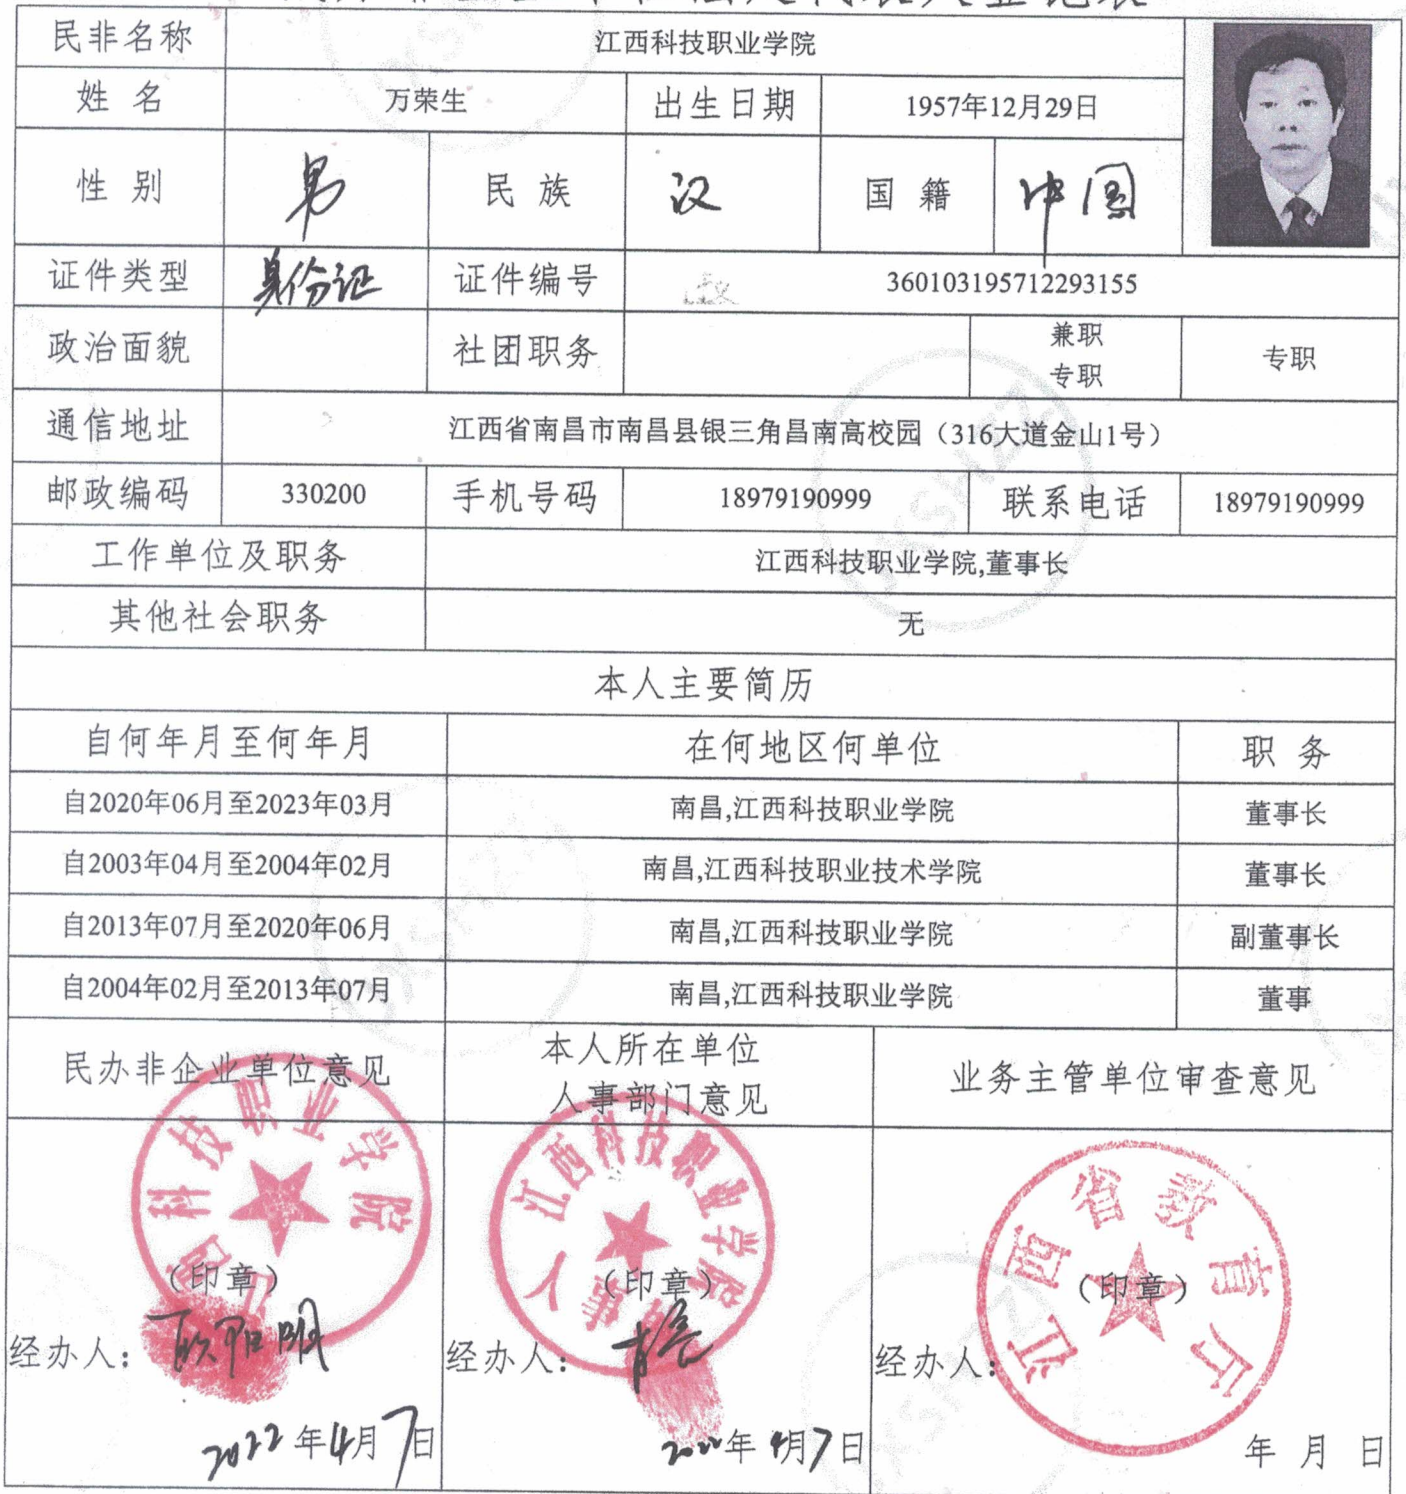 民非名称 江西科技职业学院
姓 名 万荣生 出生日期 1957年12月29日
性 别 男 民 族 汉 国 籍 中国
证件类型 身份证 证件编号 360103195712293155
政治面貌 社团职务 兼职 专职 专职
通信地址 江西省南昌市南昌县银三角昌南高校园（316大道金山1号）
邮政编码 330200 手机号码 18979190999 联系电话 18979190999
工作单位及职务 江西科技职业学院,董事长
其他社会职务 无
本人主要简历
自何年月至何年月 在何地区何单位 职 务
自2020年06月至2023年03月 南昌,江西科技职业学院 董事长
自2003年04月至2004年02月 南昌,江西科技职业技术学院 董事长
自2013年07月至2020年06月 南昌,江西科技职业学院 副董事长
自2004年02月至2013年07月 南昌,江西科技职业学院 董事
民办非企业单位意见
本人所在单位
人事部门意见
业务主管单位审查意见
科技职业学院
江西科技职业学院
江西省教育厅
（印章） （印章） （印章）
经办人： 经办人： 经办人：
2022年4月7日 2022年4月7日 年 月 日